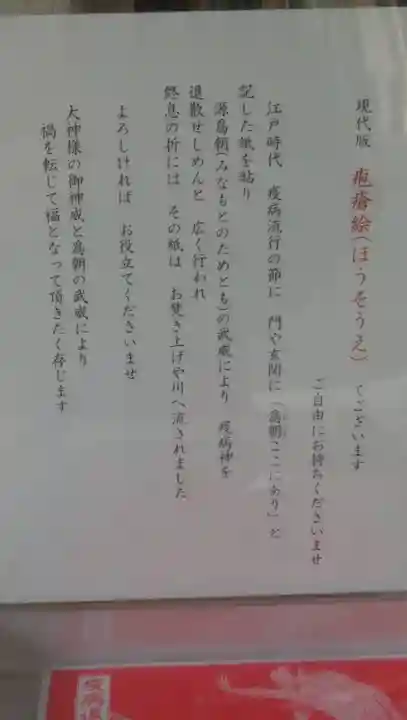 現代版 疱瘡絵(ほうそうえ) でございます
ご自由にお持ちくださいませ
江戸時代 疫病流行の節に 門や玄関に「為朝ここにあり」と
記した紙を貼り
源為朝(みなもとのためとも)の武威により 疫病神を
退散せしめんと 広く行われ
終息の折には その紙は お焚き上げや川へ流されました
よろしければ お役立てくださいませ
大神様の御神威と為朝の武威により
禍を転じて福となって頂きたく存じます
疫病退